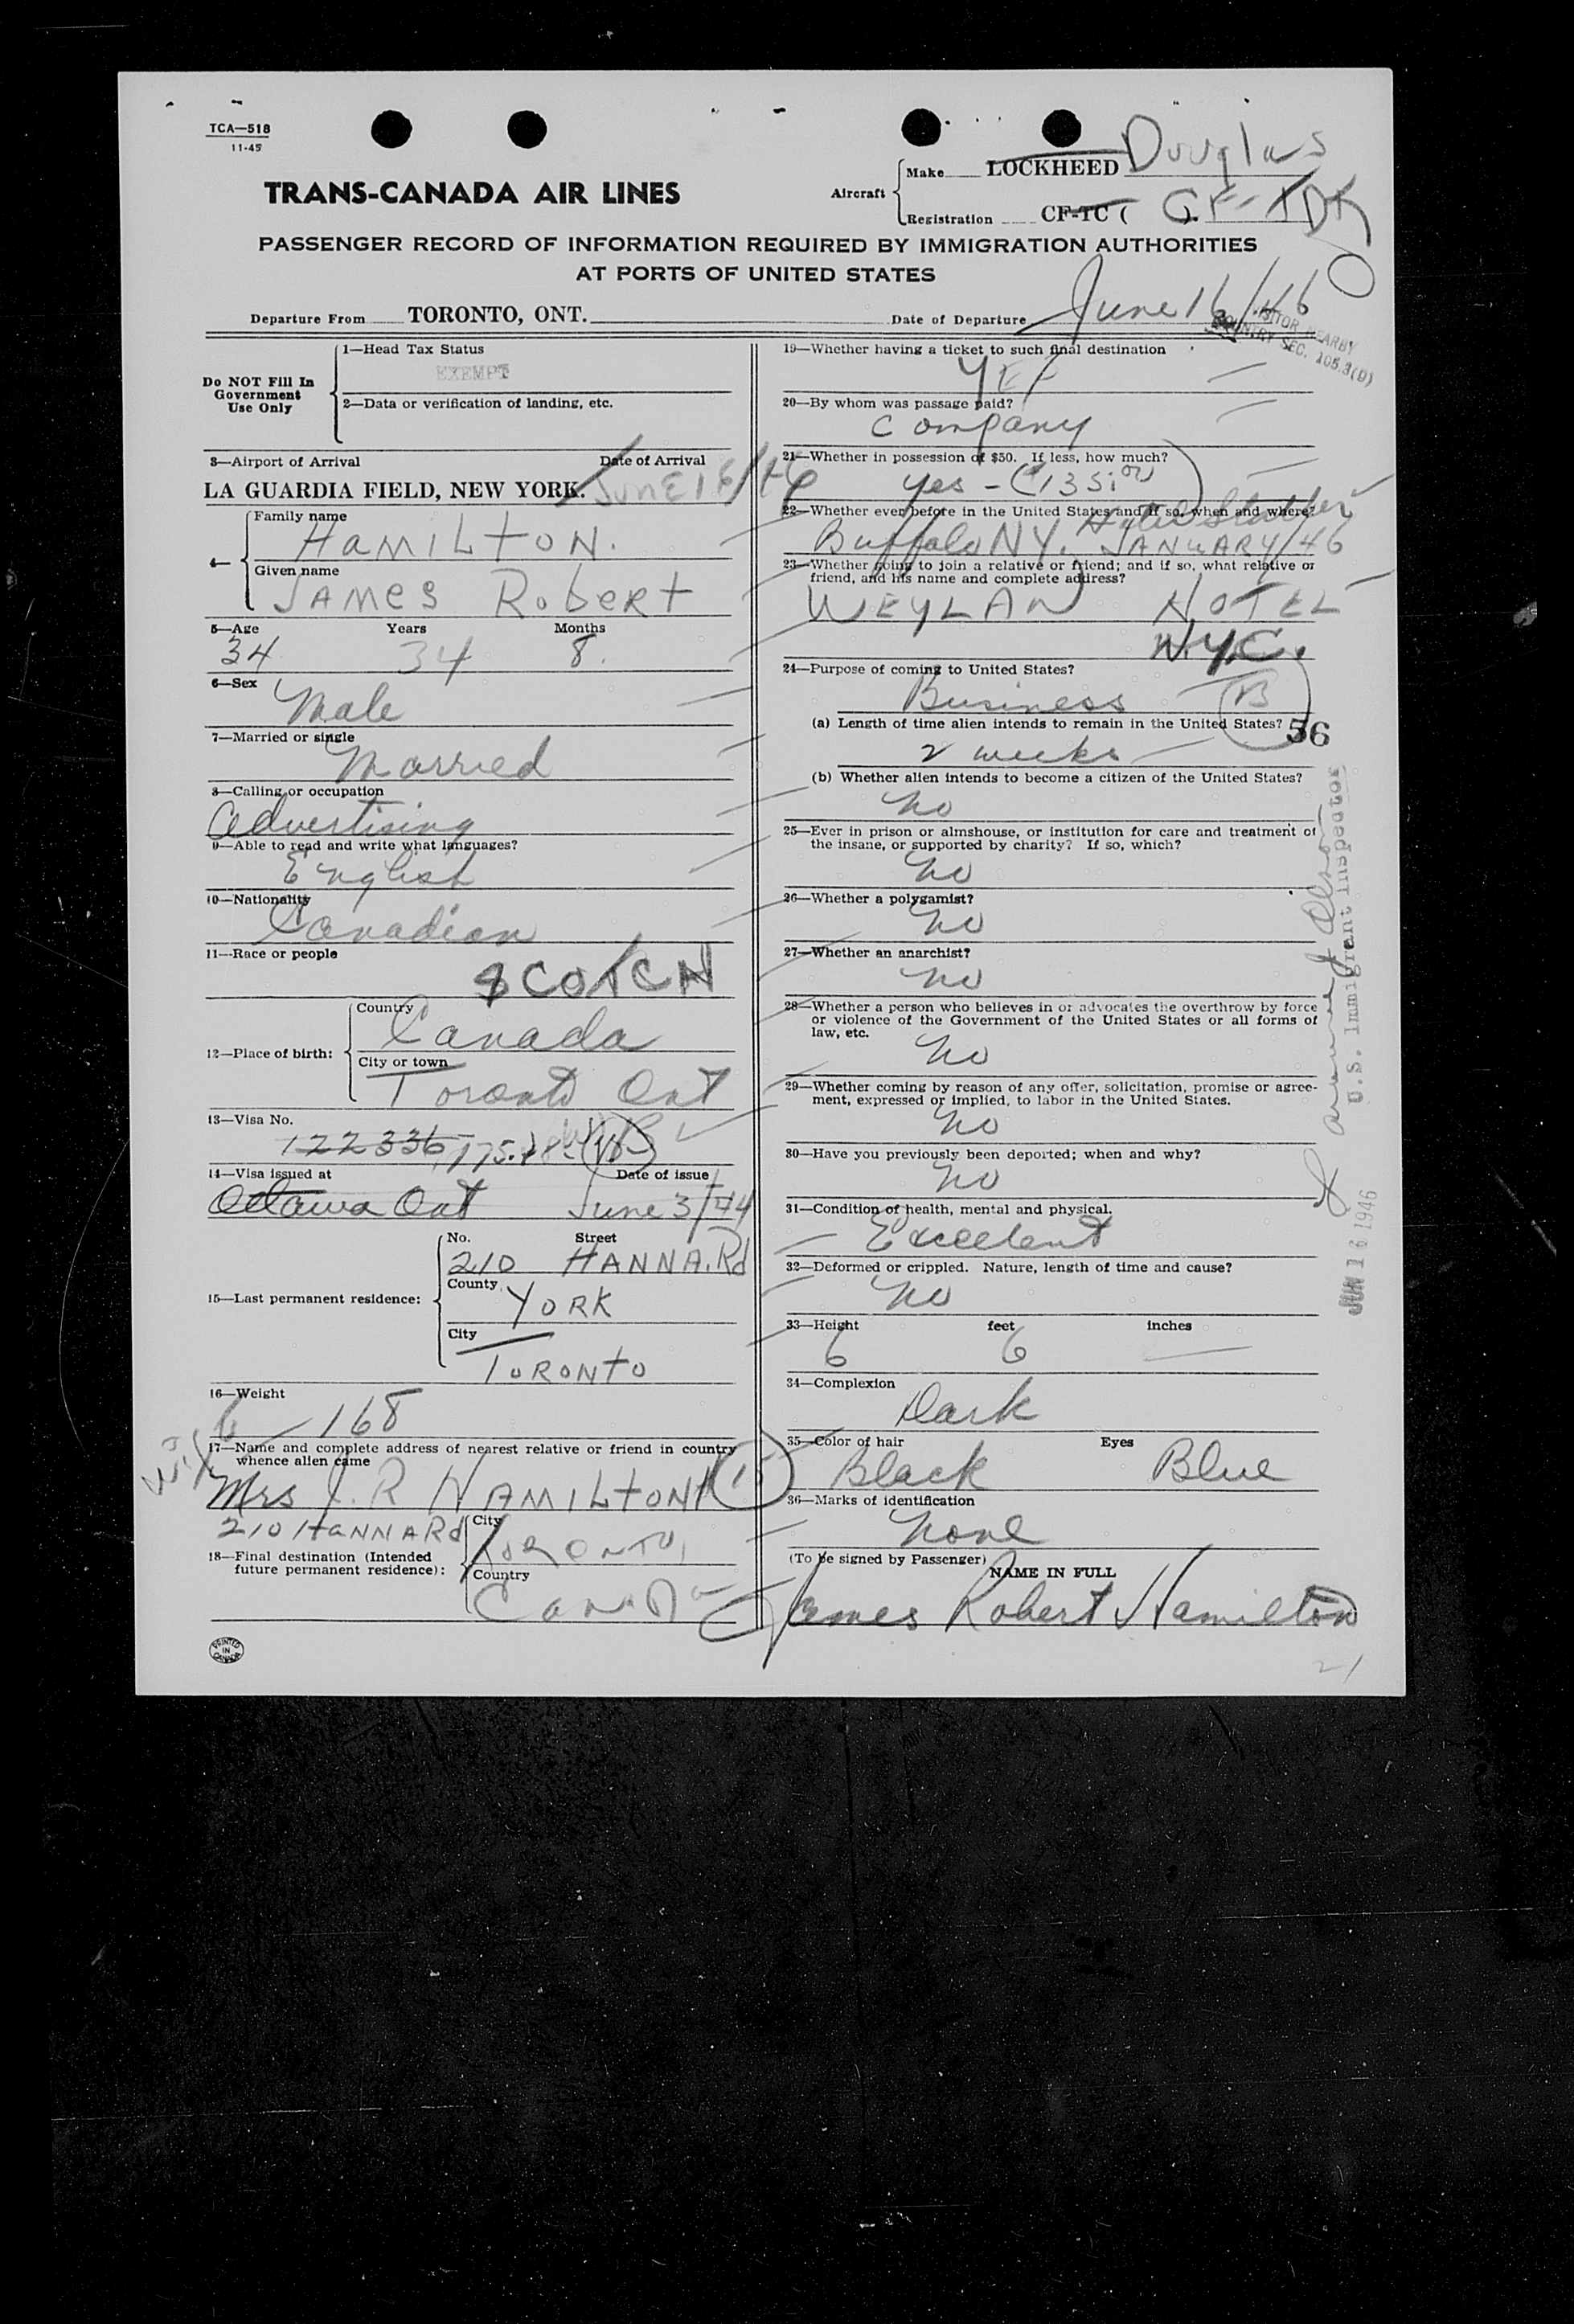 TCA—518
11-45
TRANS-CANADA AIR LINES
Aircraft
Make LOCKHEED Douglas
Registration CF-TC ( ). CF-TDK
PASSENGER RECORD OF INFORMATION REQUIRED BY IMMIGRATION AUTHORITIES
AT PORTS OF UNITED STATES
Departure From TORONTO, ONT. Date of Departure June 16/46
VISITOR NEARBY
COUNTRY SEC. 105.3(D)
Do NOT Fill In
Government
Use Only
1—Head Tax Status
EXEMPT
2—Data or verification of landing, etc.
3—Airport of Arrival Date of Arrival
LA GUARDIA FIELD, NEW YORK. JUNE 16/46
4—
Family name
HAMILTON.
Given name
JAMES ROBERT
5—Age Years Months
34 34 8.
6—Sex
Male
7—Married or single
Married
8—Calling or occupation
Advertising
9—Able to read and write what languages?
English
10—Nationality
Canadian
11—Race or people
SCOTCH
12—Place of birth:
Country
Canada
City or town
Toronto Ont
13—Visa No.
122336
14—Visa issued at Date of issue
Ottawa Ont June 3/44
15—Last permanent residence:
No. Street
210 HANNA. Rd
County
YORK
City
TORONTO
16—Weight
168
17—Name and complete address of nearest relative or friend in country
whence alien came
wife
Mrs J. R HAMILTON
210 HANNA Rd
18—Final destination (Intended
future permanent residence):
City
TORONTO,
Country
CANADA
PRINTED
IN
CANADA
19—Whether having a ticket to such final destination
YES
20—By whom was passage paid?
Company
21—Whether in possession of $50. If less, how much?
yes -
22—Whether ever before in the United States and if so, when and where?
Hotel Statler
Buffalo NY. JANUARY/46
23—Whether going to join a relative or friend; and if so, what relative or
friend, and his name and complete address?
WEYLAN HOTEL
N.Y.C.
24—Purpose of coming to United States?
Business B
(a) Length of time alien intends to remain in the United States?
56
2 weeks
(b) Whether alien intends to become a citizen of the United States?
No
25—Ever in prison or almshouse, or institution for care and treatment of
the insane, or supported by charity? If so, which?
No
26—Whether a polygamist?
No
27—Whether an anarchist?
No
28—Whether a person who believes in or advocates the overthrow by force
or violence of the Government of the United States or all forms of
law, etc.
No
29—Whether coming by reason of any offer, solicitation, promise or agree-
ment, expressed or implied, to labor in the United States.
No
30—Have you previously been deported; when and why?
No
31—Condition of health, mental and physical.
Excellent
32—Deformed or crippled. Nature, length of time and cause?
No
33—Height feet inches
6 6 —
34—Complexion
Dark
35—Color of hair Eyes
Black Blue
36—Marks of identification
None
(To be signed by Passenger)
NAME IN FULL
James Robert Hamilton
21
U.S. Immigrant Inspector
JUN 16 1946